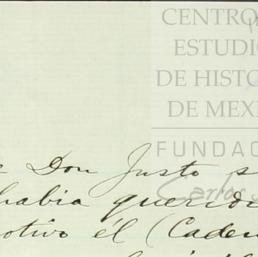 CENTRO
ESTUDI
DE HISTO
DE MEXI
FUNDAC
Carlos
Don Justo
habia querido
otivo él (Caden